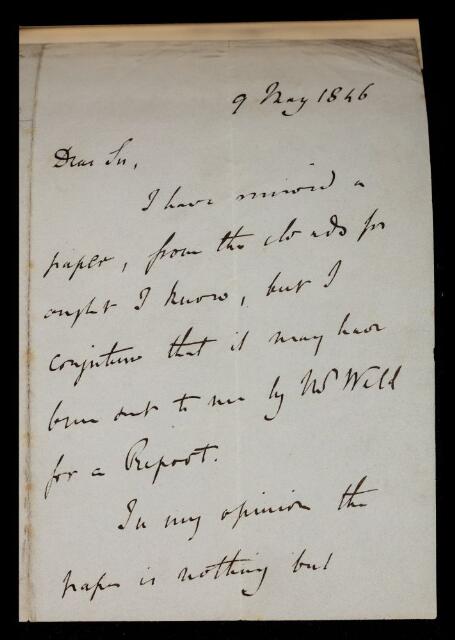 9 May 1846
Dear Sir,
I have received a
paper, from the clouds for
ought I know, but I
conjecture that it may have
been sent to me by Mr Weld
for a Report.
In my opinion the
paper is nothing but